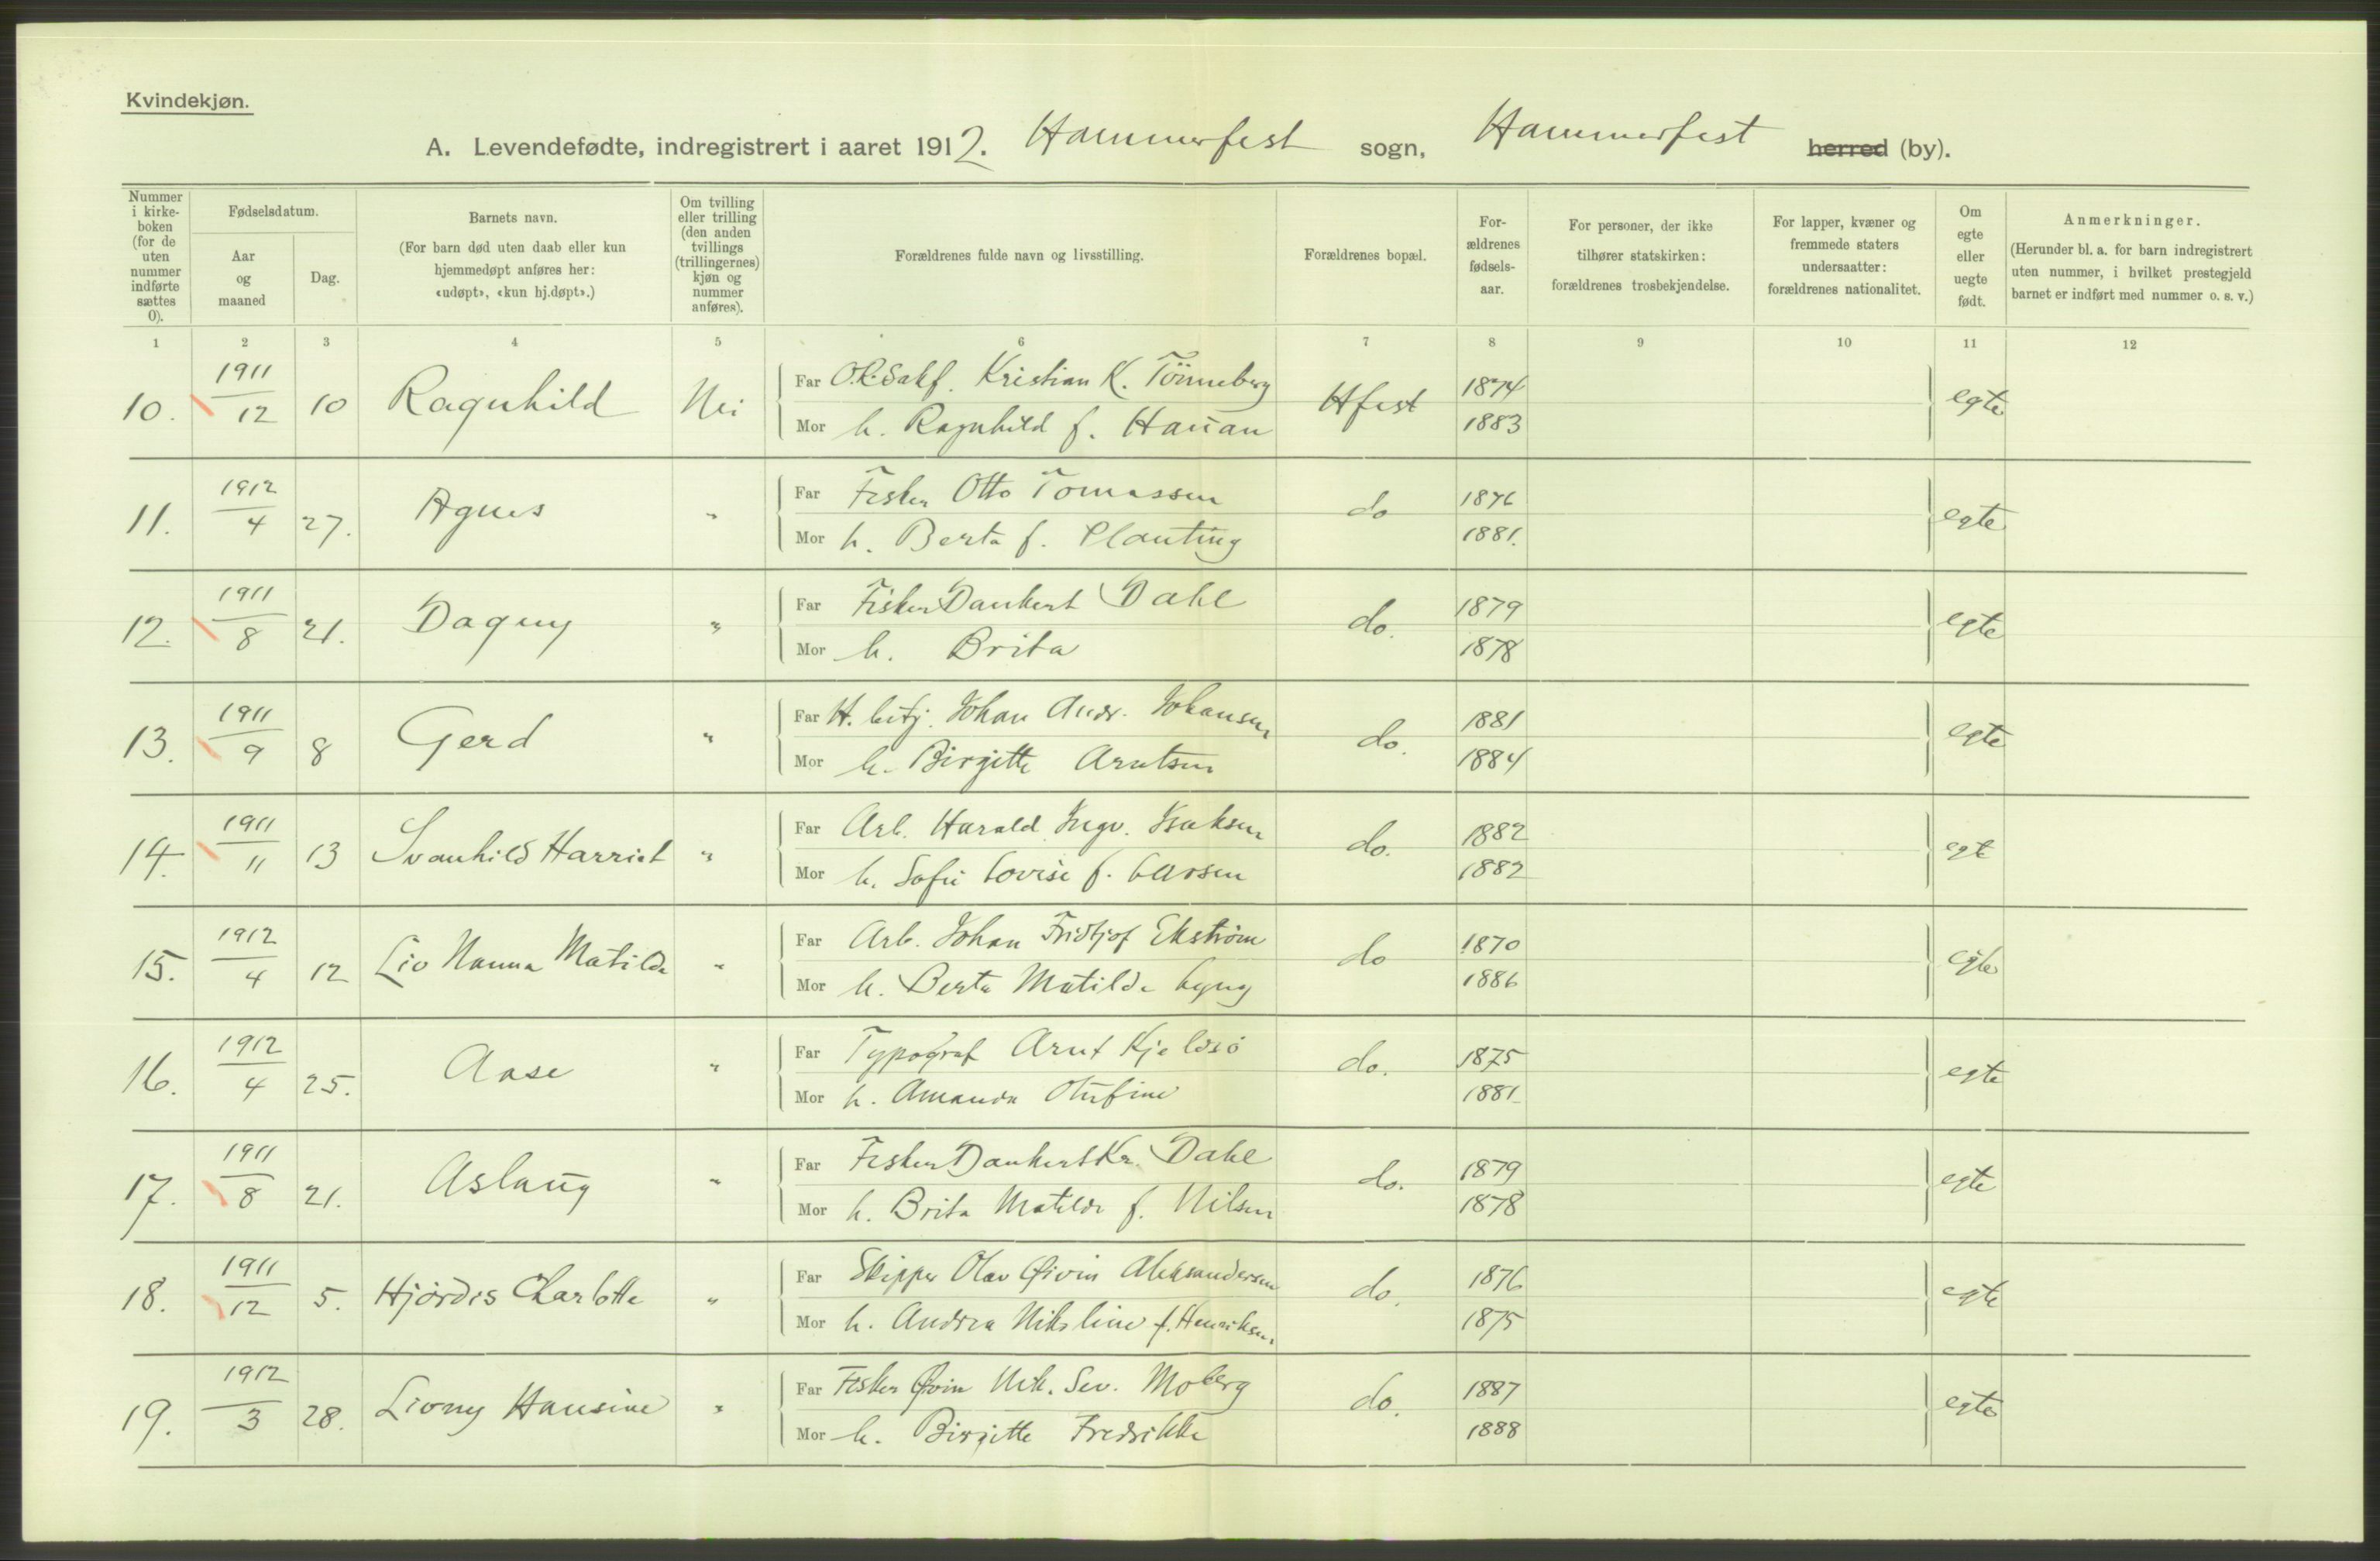 Kvindekjøn.
A. Levendefødte, indregistrert i aaret 1912. Hammerfest sogn, Hammerfest herred (by).
Nummer i kirke-boken (for de uten nummer indførte sættes 0).
Fødselsdatum.
Aar og maaned
Dag.
Barnets navn.
(For barn død uten daab eller kun hjemmedøpt anføres her: «udøpt», «kun hj.døpt».)
Om tvilling eller trilling (den anden tvillings (trillingernes) kjøn og nummer anføres).
Forældrenes fulde navn og livsstilling.
Forældrenes bopæl.
For-ældrenes fødsels-aar.
For personer, der ikke tilhører statskirken: forældrenes trosbekjendelse.
For lapper, kvæner og fremmede staters undersaatter: forældrenes nationalitet.
Om egte eller uegte født.
Anmerkninger.
(Herunder bl. a. for barn indregistrert uten nummer, i hvilket prestegjeld barnet er indført med nummer o. s. v.)
1 2 3 4 5 6 7 8 9 10 11 12
10. 1911/12 10 Ragnhild Nei Far O.R.Sakf. Kristian K. Tönneberg Hfest 1874 egte
Mor h. Ragnhild f. Hauan 1883
11. 1912/4 27. Agnes " Far Fisker Otto Tomassen do 1876 egte
Mor h. Berta f. Planting 1881.
12. 1911/8 21. Dagny " Far Fisker Dankert Dahl do. 1879 egte
Mor h. Brita 1878
13. 1911/9 8 Gerd " Far Johan Andr. Johansen do. 1881 egte
Mor h. Birgitte Arntsen 1884
14. 1911/11 13 Svanhild Harriet " Far Arb. Harald Ingv. Isaksen do. 1882 egte
Mor h. Sofie Lovise f. Larsen 1882
15. 1912/4 12 Liv Nanna Matilde " Far Arb. Johan Fridtjof Ekström do 1870 egte
Mor h. Berta Matilde Lyng 1886
16. 1912/4 25. Aase " Far Typograf Arnt Kjeldsö do. 1875 egte
Mor h. Amanda Olufine 1881
17. 1911/8 21. Aslaug " Far Fisker Dankert Kr. Dahl do. 1879 egte
Mor h. Brita Matilde f. Nilsen 1878
18. 1911/12 5. Hjördis Charlotte " Far Skipper Olav Øivin Aleksandersen do. 1876 egte
Mor h. Andrea Nikoline f. Henriksen 1875
19. 1912/3 28. Livny Hansine " Far Fisker Øvin Nik. Sev. Moberg do. 1887 egte
Mor h. Birgitte Fredrikke 1888